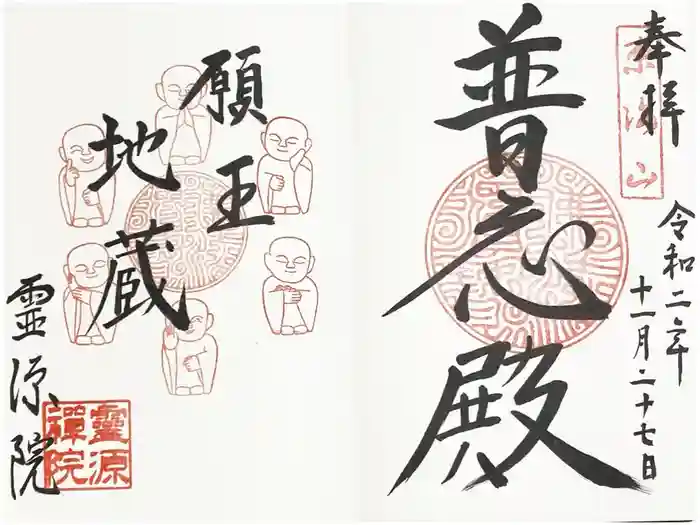 奉拝
令和二年
十一月二十七日
普応殿
願王
地蔵
霊源院
靈源
禪院